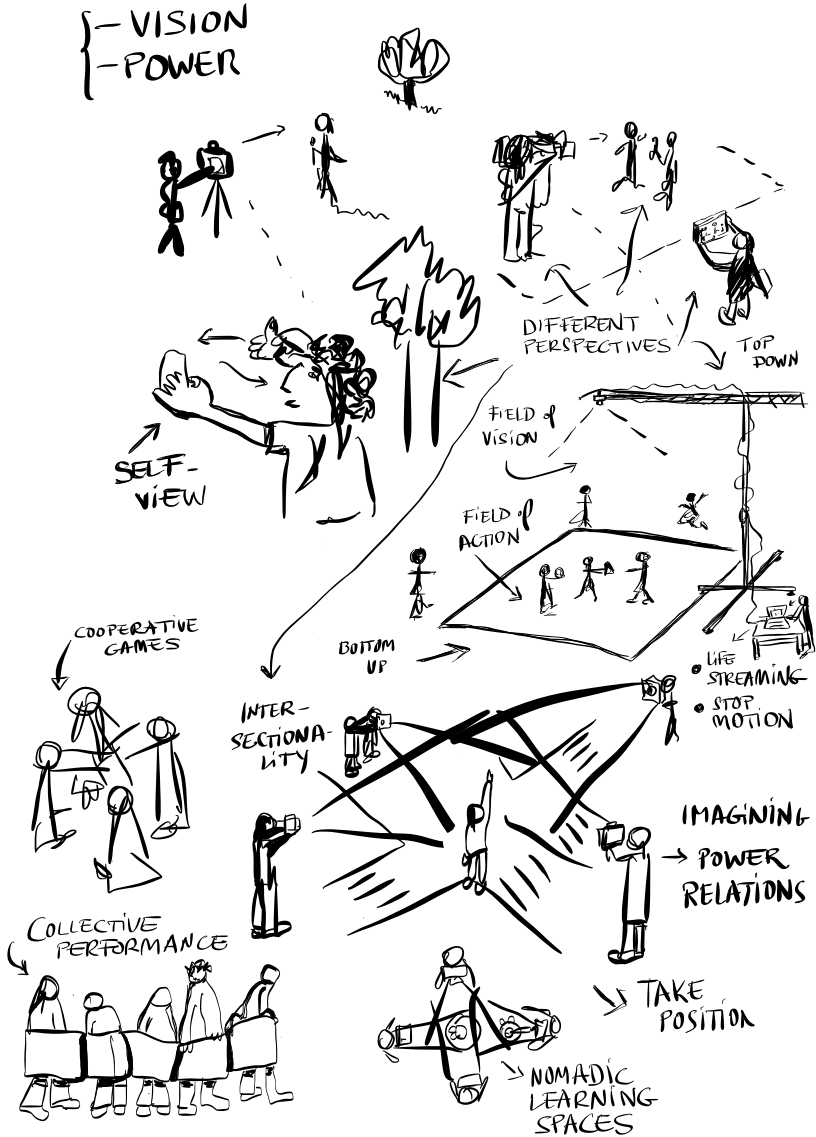 - VISION
- POWER
DIFFERENT
PERSPECTIVES
TOP
DOWN
FIELD of
VISION
SELF-
VIEW
FIELD of
ACTION
COOPERATIVE
GAMES
BOTTOM
UP
• LIFE
STREAMING
• STOP
MOTION
INTER-
SECTIONA-
LITY
IMAGINING
POWER
RELATIONS
COLLECTIVE
PERFORMANCE
TAKE
POSITION
NOMADIC
LEARNING
SPACES